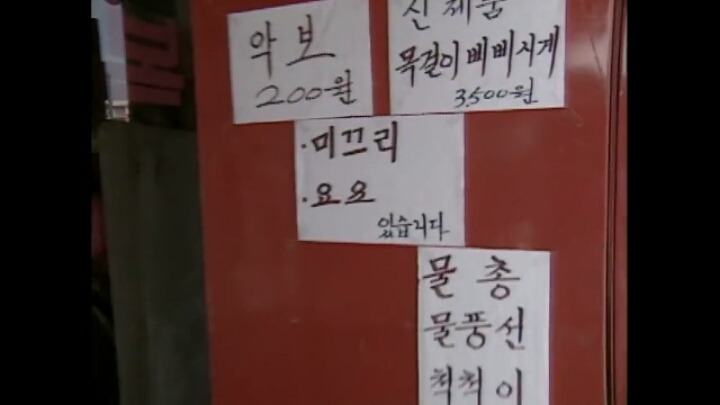 악보
200원
신제품
목걸이삐삐시계
3,500원
·미끄리
·요요
있습니다
물총
물풍선
척척이